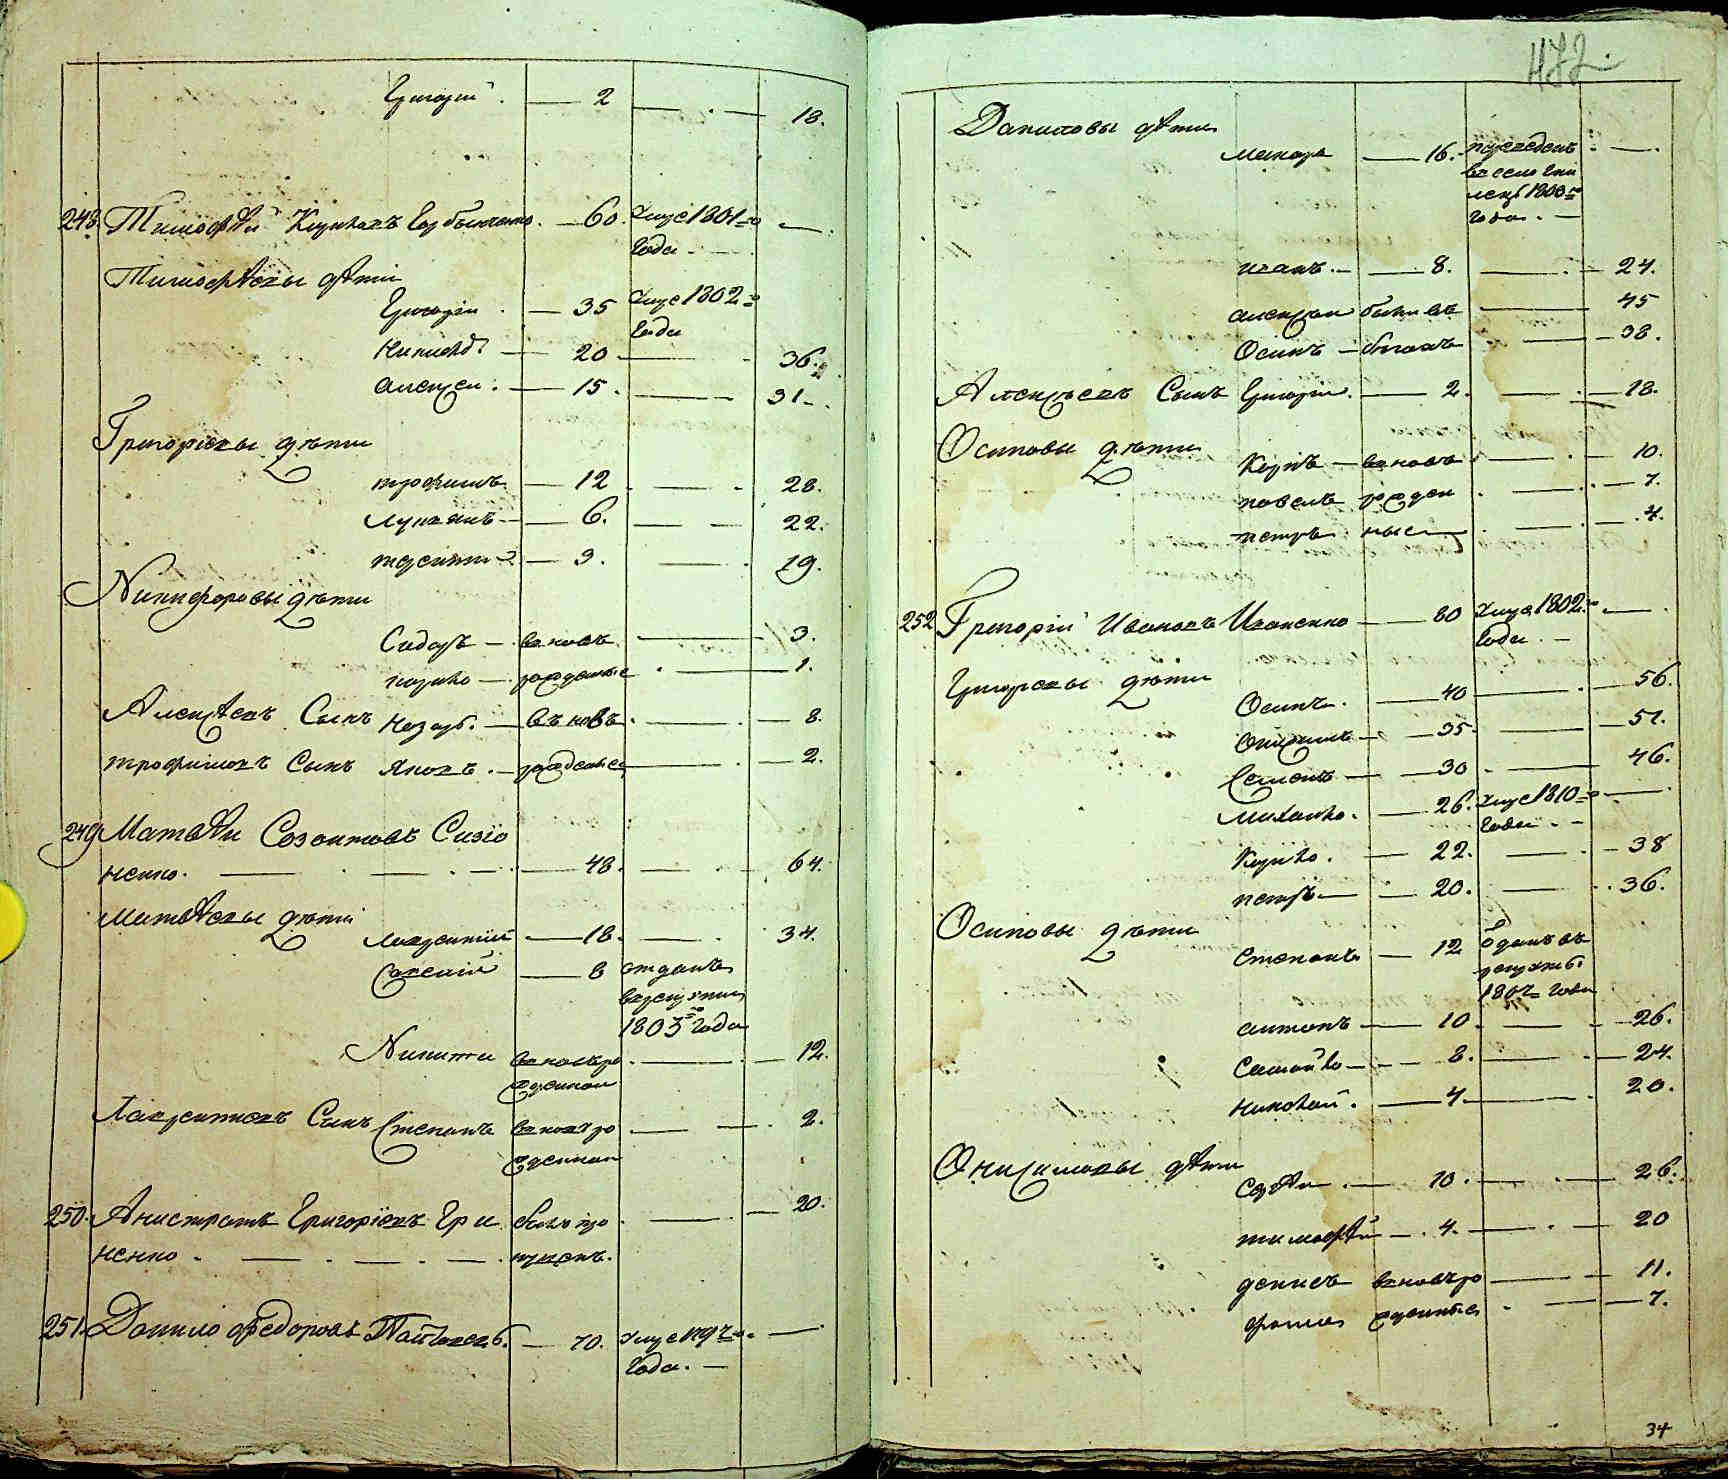 Григорій. — 2 — . — 18.
248. Тимофѣй Кириловъ Горбыненко. — 60. умре 1801го —
Года. —
Тимофѣевы дѣти
Григорій. — 35 умре 1802го
Года
Никифоръ — 20 — 36.
Алексеи. — 15. — 31.
Григоріевы дѣти
трофимъ — 12 — 28.
Лукаянъ — 6. — 22.
терентій — 3. — 19.
Никифоровы дѣти
Сидоръ — вновь — 3.
кирило — рожденные — 1.
Алексѣевъ Сынъ Назаръ. — въ новь — 8.
трофимовъ Сынъ Яковъ. — рожденные — 2.
249. Матвѣи Созонтовъ Сизіо
ненко. — 48. — 64.
Матвѣевы дѣти
Лаврентій — 18. — 34.
Савелій — 8 отданъ
в рекруты
1803го Года
Никита вновь ро — 12.
жденнои
Лаврентиевъ Сынъ Степанъ вновь ро — 2.
жденнои
250. Анистратъ Григоріевъ Гри быль про — 20.
ненко. — пущенъ.
251. Данило Федоровъ — 70. умре 1797го —
Года. —
472.
Даниловы дѣти
Макаръ — 16. —
1800го
Года. —
иванъ. — 8. — 24.
алексеи былъ въ — 45
Осипъ — бегахъ — 38.
Алексѣевъ Сынъ Григоріи. — 2. — 18.
Осиповы дѣти
Карпъ — вновь — 10.
павелъ рожден — 7.
петръ ные — 4.
252 Григорій Ивановъ Иваненко — 80 умре 1802го —
Года. —
Григорьевы дѣти
Осипъ. — 40 — 56.
Онисимъ — 35 — 51.
Семенъ — 30 — 46.
Михаило. — 26. умре 1810го —
Года. —
Кирило. — 22. — 38
петръ — 20. — 36.
Осиповы дѣти
Степанъ — 12 отданъ въ
рекруты
1807го Года
антонъ — 10 — 26.
Самойло — 8. — 24.
Николай. — 4 — 20.
Онисимовы дѣти
Сергѣи — 10. — 26.
тимофѣй — 4. — 20
денисъ вновь ро — 11.
фома жденные — 7.
34